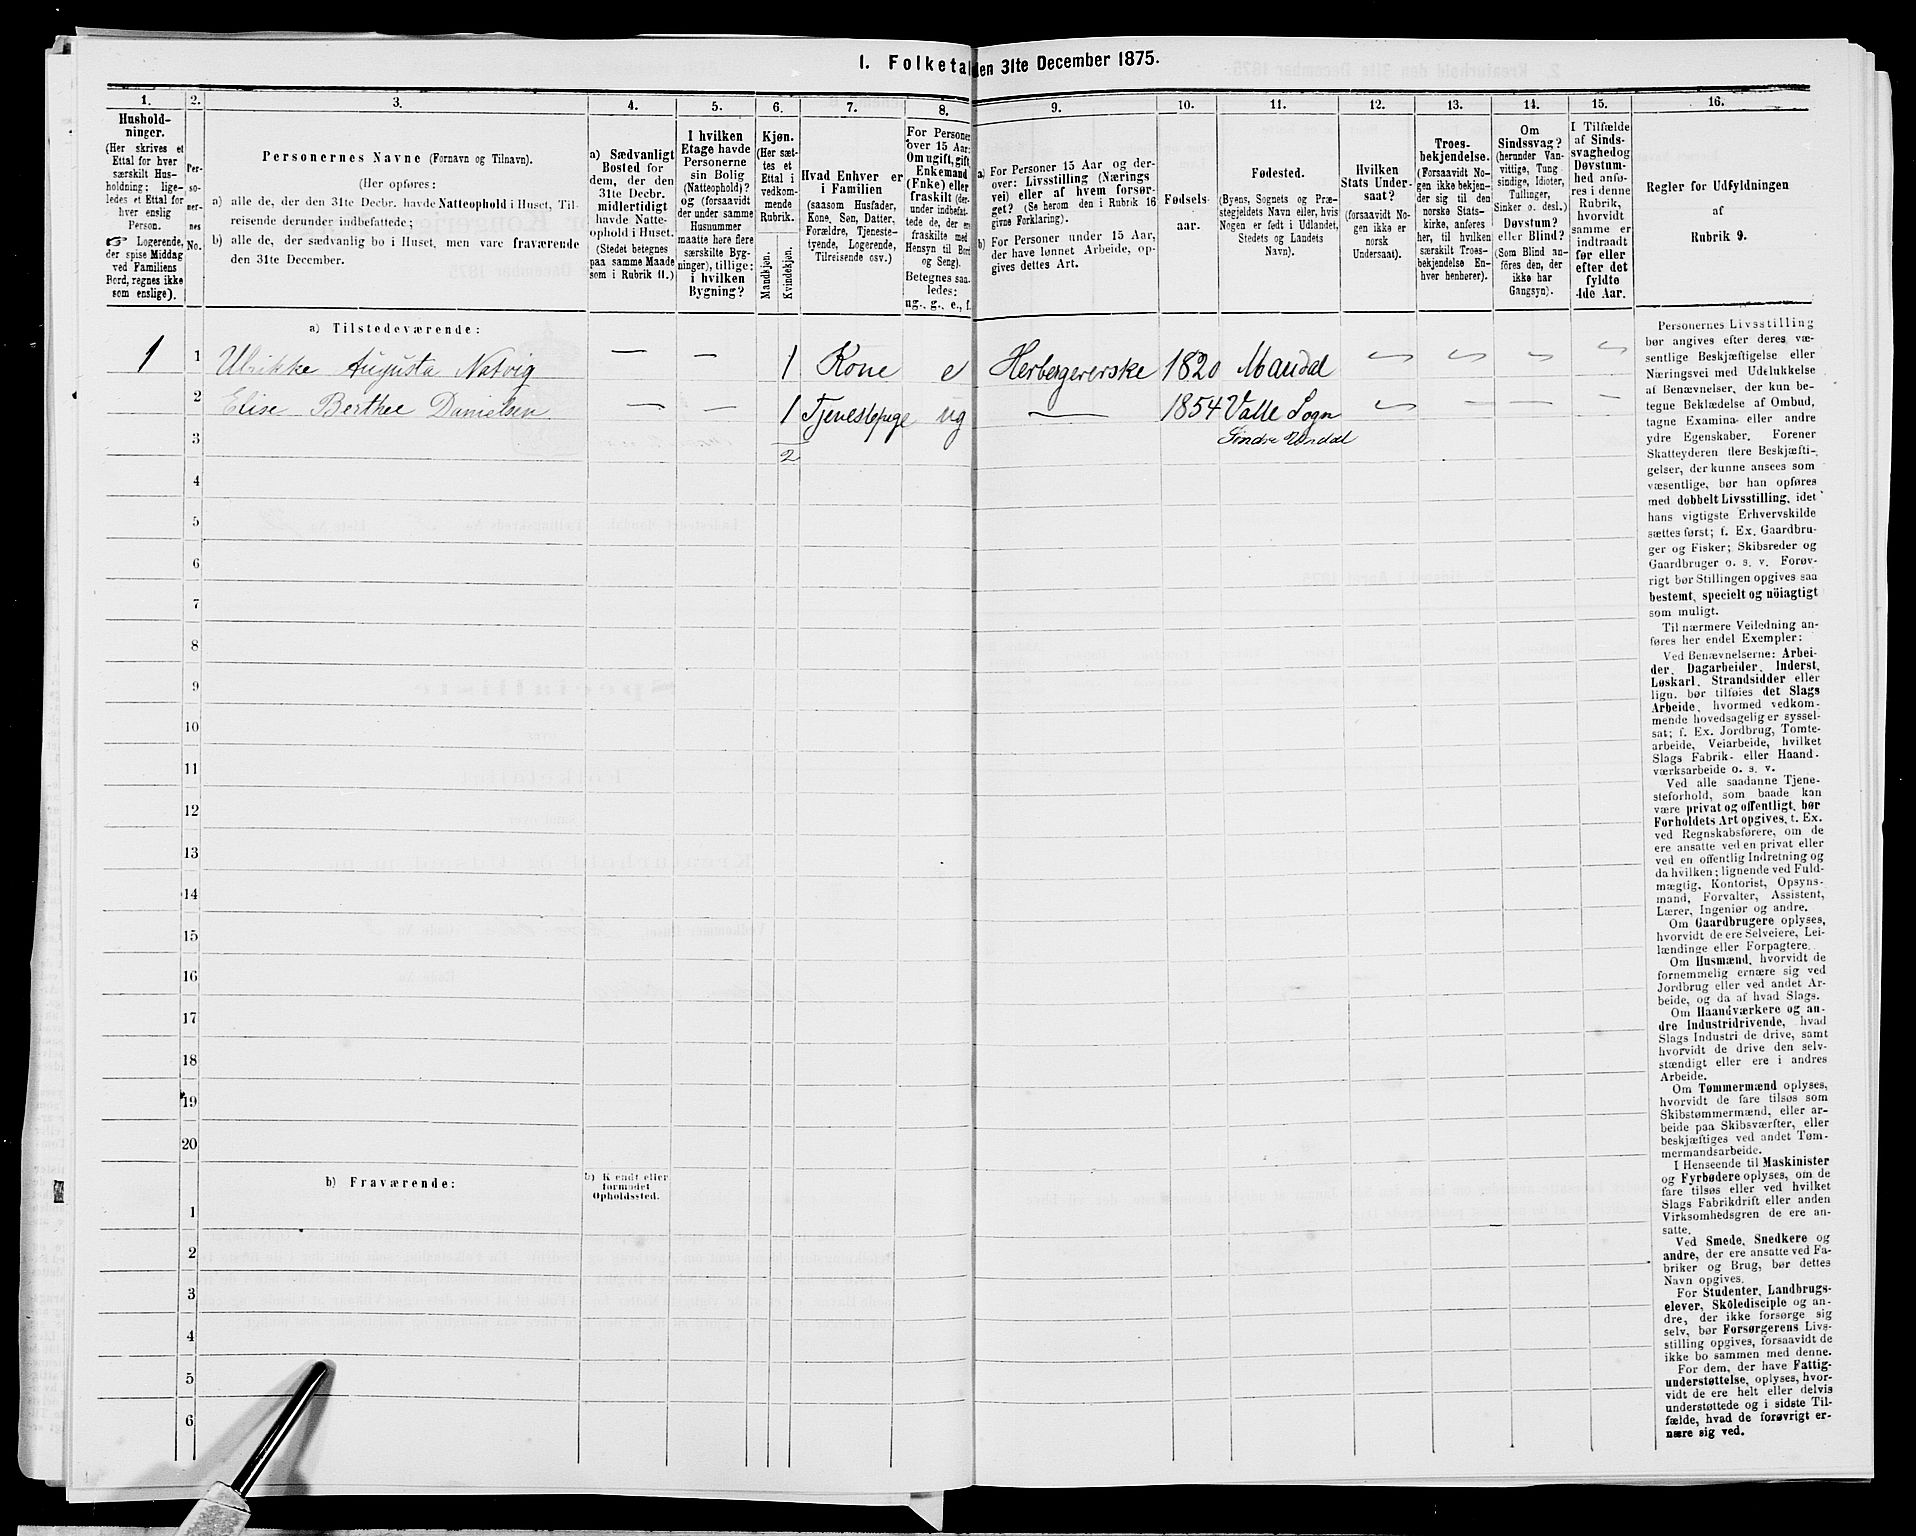 I. Folketal den 31te December 1875.
1. 2. 3. 4. 5. 6. 7. 8. 9. 10. 11. 12. 13. 14. 15. 16.
Hushold-
ninger.
(Her skrives et
Ettal for hver
særskilt Hus-
holdning; lige-
ledes et Ettal for
hver enslig
Person.
☞ Logerende,
der spise Middag
ved Familiens
Bord, regnes ikke
som enslige).
Per-
so-
ner-
nes
No.
Personernes Navne (Fornavn og Tilnavn).
(Her opføres:
a) alle de, der den 31te Decbr. havde Natteophold i Huset, Til-
reisende derunder indbefattede;
b) alle de, der sædvanlig bo i Huset, men vare fraværende
den 31te December.
a) Sædvanligt
Bosted for
dem, der den
31te Decbr.
midlertidigt
havde Natte-
ophold i Huset.
(Stedet betegnes
paa samme Maade
som i Rubrik 11.)
I hvilken
Etage havde
Personerne
sin Bolig
(Natteophold)?
og (forsaavidt
der under samme
Husnummer
maatte høre flere
særskilte Byg-
ninger), tillige:
i hvilken
Bygning?
Kjøn.
(Her sæt-
tes et
Ettal i
vedkom-
mende
Rubrik.
Mandkjøn.
Kvindekjøn.
Hvad Enhver er
i Familien
(saasom Husfader,
Kone, Søn, Datter,
Forældre, Tjeneste-
tyende, Logerende,
Tilreisende osv.)
For Personer
over 15 Aar:
Om ugift, gift,
Enkemand
(Enke) eller
fraskilt (der-
under indbefat-
tede de, der ere
fraskilte med
Hensyn til Bord
og Seng).
Betegnes saa-
ledes:
ug., g., e., f.
a) For Personer 15 Aar og der-
over: Livsstilling (Nærings
vei) eller af hvem forsør-
get? (Se herom den i Rubrik 16
givne Forklaring).
b) For Personer under 15 Aar,
der have lønnet Arbeide, op-
gives dettes Art.
Fødsels-
aar.
Fødested.
(Byens, Sognets og Præ-
stegjeldets Navn eller, hvis
Nogen er født i Udlandet,
Stedets og Landets
Navn).
Hvilken
Stats Under-
saat?
(forsaavidt No-
gen ikke er
norsk
Undersaat).
Troes-
bekjendelse.
(Forsaavidt No-
gen ikke bekjen-
der sig til den
norske Stats-
kirke, anføres
her, til hvilken
særskilt Troes-
bekjendelse En-
hver henhører).
Om
Sindssvag?
(herunder Van-
vittige, Tung-
sindige, Idioter,
Tullinger,
Sinker o. desl.)
Døvstum?
eller Blind?
(Som Blind an-
føres den, der
ikke har
Gangsyn).
I Tilfælde
af Sinds-
svaghed og
Døvstum-
hed anfø-
res i denne
Rubrik,
hvorvidt
samme er
indtraadt
før eller
efter det
fyldte
4de Aar.
Regler for Udfyldningen
af
Rubrik 9.
a) Tilstedeværende:
1 1 Ulrikke Augusta Natvig — — 1 Kone e Herbergererske 1820 Mandal
2 Elise Berthee Danielsen — — 1 Tjenestepige ug — 1854 Valle Sogn
Søndre Undal
3 2
4
5
6
7
8
9
10
11
12
13
14
15
16
17
18
19
20
b) Fraværende:
b) Kjendt eller
formodet
Opholdssted.
1
2
3
4
5
6
Personernes Livsstilling
bør angives efter deres væ-
sentlige Beskjæftigelse eller
Næringsvei med Udelukkelse
af Benævnelser, der kun be-
tegne Beklædelse af Ombud,
tagne Examina eller andre
ydre Egenskaber. Forener
Skatteyderen flere Beskjæfti-
gelser, der kunne ansees som
væsentlige, bør han opføres
med dobbelt Livsstilling, idet
hans vigtigste Erhvervskilde
sættes først; f. Ex. Gaardbru-
ger og Fisker; Skibsreder og
Gaardbruger o. s. v. Forøv-
rigt bør Stillingen opgives saa
bestemt, specielt og nöiagtigt
som muligt.
Til nærmere Veiledning an-
føres her endel Exempler:
Ved Benævnelserne: Arbei-
der, Dagarbeider, Inderst,
Løskarl, Strandsidder eller
lign. bør tilføies det Slags
Arbeide, hvormed vedkom-
mende hovedsagelig er syssel-
sat; f. Ex. Jordbrug, Tomte-
arbeide, Veiarbeide, hvilket
Slags Fabrik- eller Haand-
værksarbeide o. s. v.
Ved alle saadanne Tjene-
steforhold, som baade kan
være privat og offentligt, bør
Forholdets Art opgives, t. Ex.
ved Regnskabsførere, om de
ere ansatte ved en privat eller
ved en offentlig Indretning og
da hvilken; lignende ved Fuld-
mægtig, Kontorist, Opsyns-
mand, Forvalter, Assistent,
Lærer, Ingeniør og andre.
Om Gaardbrugere oplyses,
hvorvidt de ere Selveiere, Lei-
lændinge eller Forpagtere.
Om Husmænd, hvorvidt de
fornemmelig ernære sig ved
Jordbrug eller ved andet Ar-
beide, og da af hvad Slags.
Om Haandværkere og an-
dre Industridrivende, hvad
Slags Industri de drive, samt
hvorvidt de drive den selv-
stændigt eller ere i andres
Arbeide.
Om Tømmermænd oplyses,
hvorvidt de fare tilsøs som
Skibstømmermænd, eller ar-
beide paa Skibsværfter, eller
beskjæftiges ved andet Tøm-
mermandsarbeide.
I Henseende til Maskinister
og Fyrbødere oplyses, om de
fare tilsøs eller ved hvilket
Slags Fabrikdrift eller anden
Virksomhedsgren de ere an-
satte.
Ved Smede, Snedkere og
andre, der ere ansatte ved Fa-
briker og Brug, bør dettes
Navn opgives.
For Studenter, Landbrugs-
elever, Skoledisciple og an-
dre, der ikke forsørge sig
selv, bør Forsørgerens Livs-
stilling opgives, forsaavidt de
ikke bo sammen med denne.
For dem, der have Fattig-
understøttelse, oplyses, hvor-
vidt de ere helt eller delvis
understøttede og i sidste Til-
fælde, hvad de forøvrigt er-
nære sig ved.